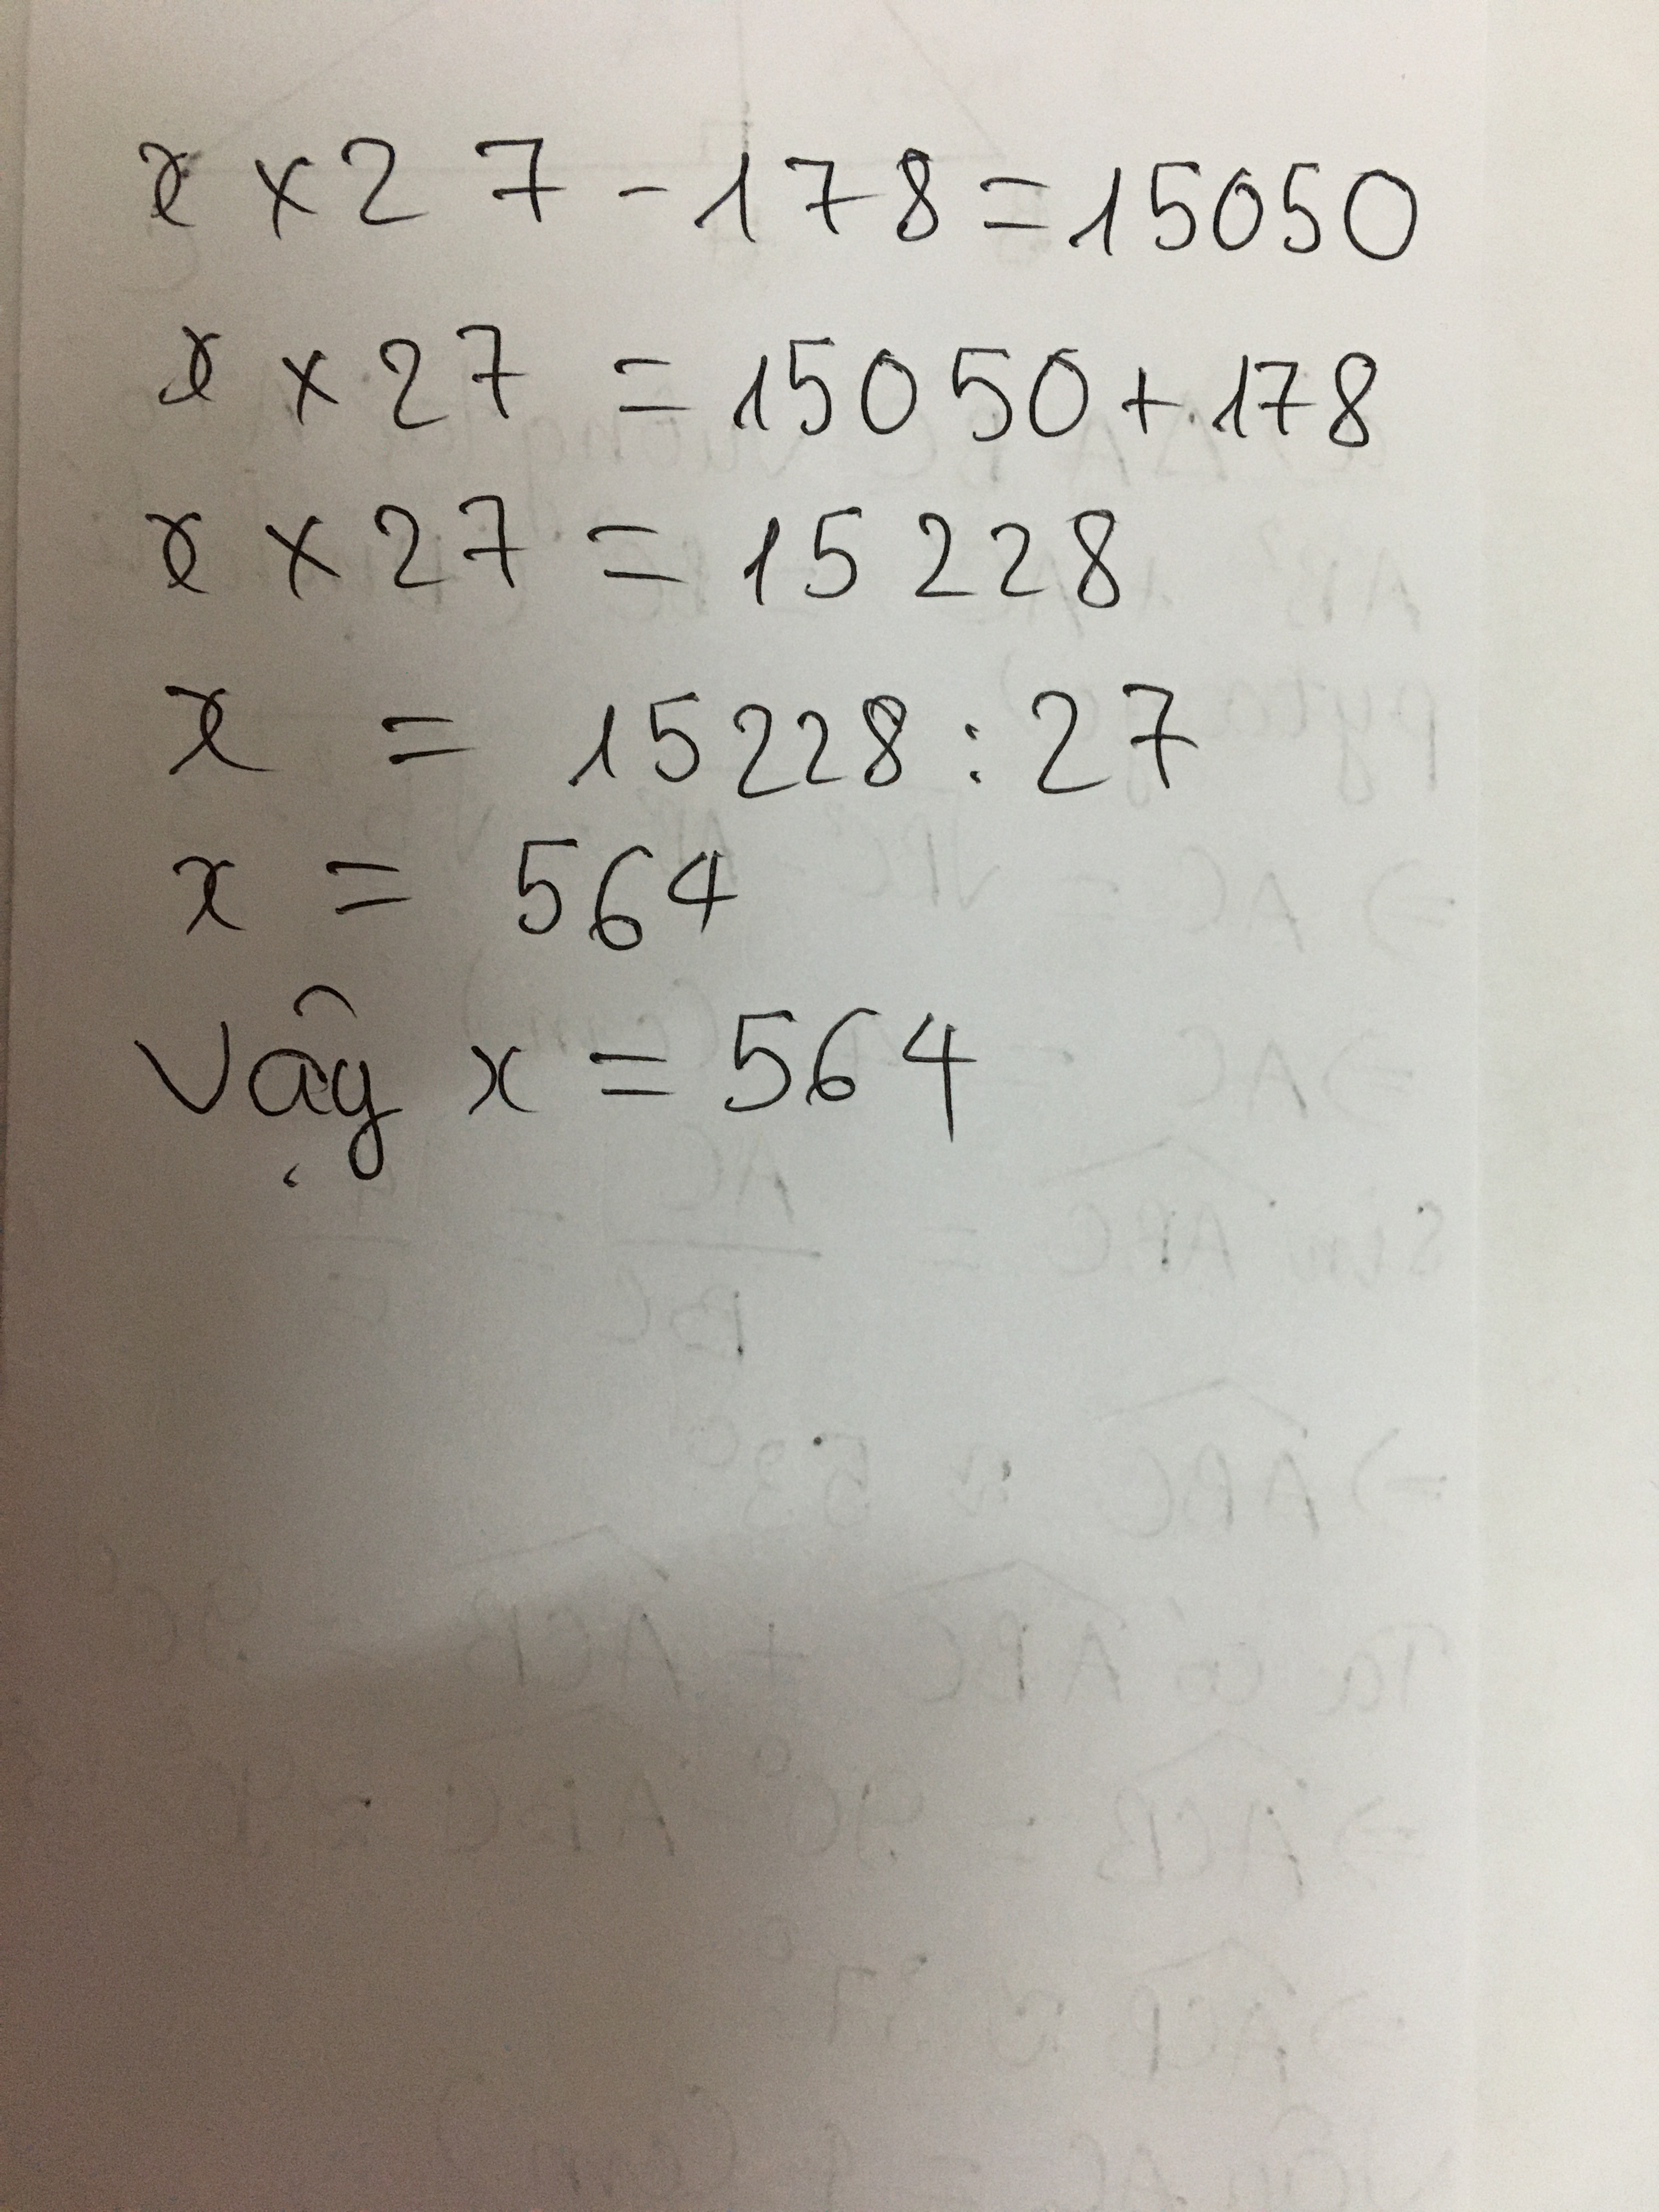 x × 27 - 178 = 15050
x × 27 = 15050 + 178
x × 27 = 15228
x = 15228 : 27
x = 564
Vậy x = 564